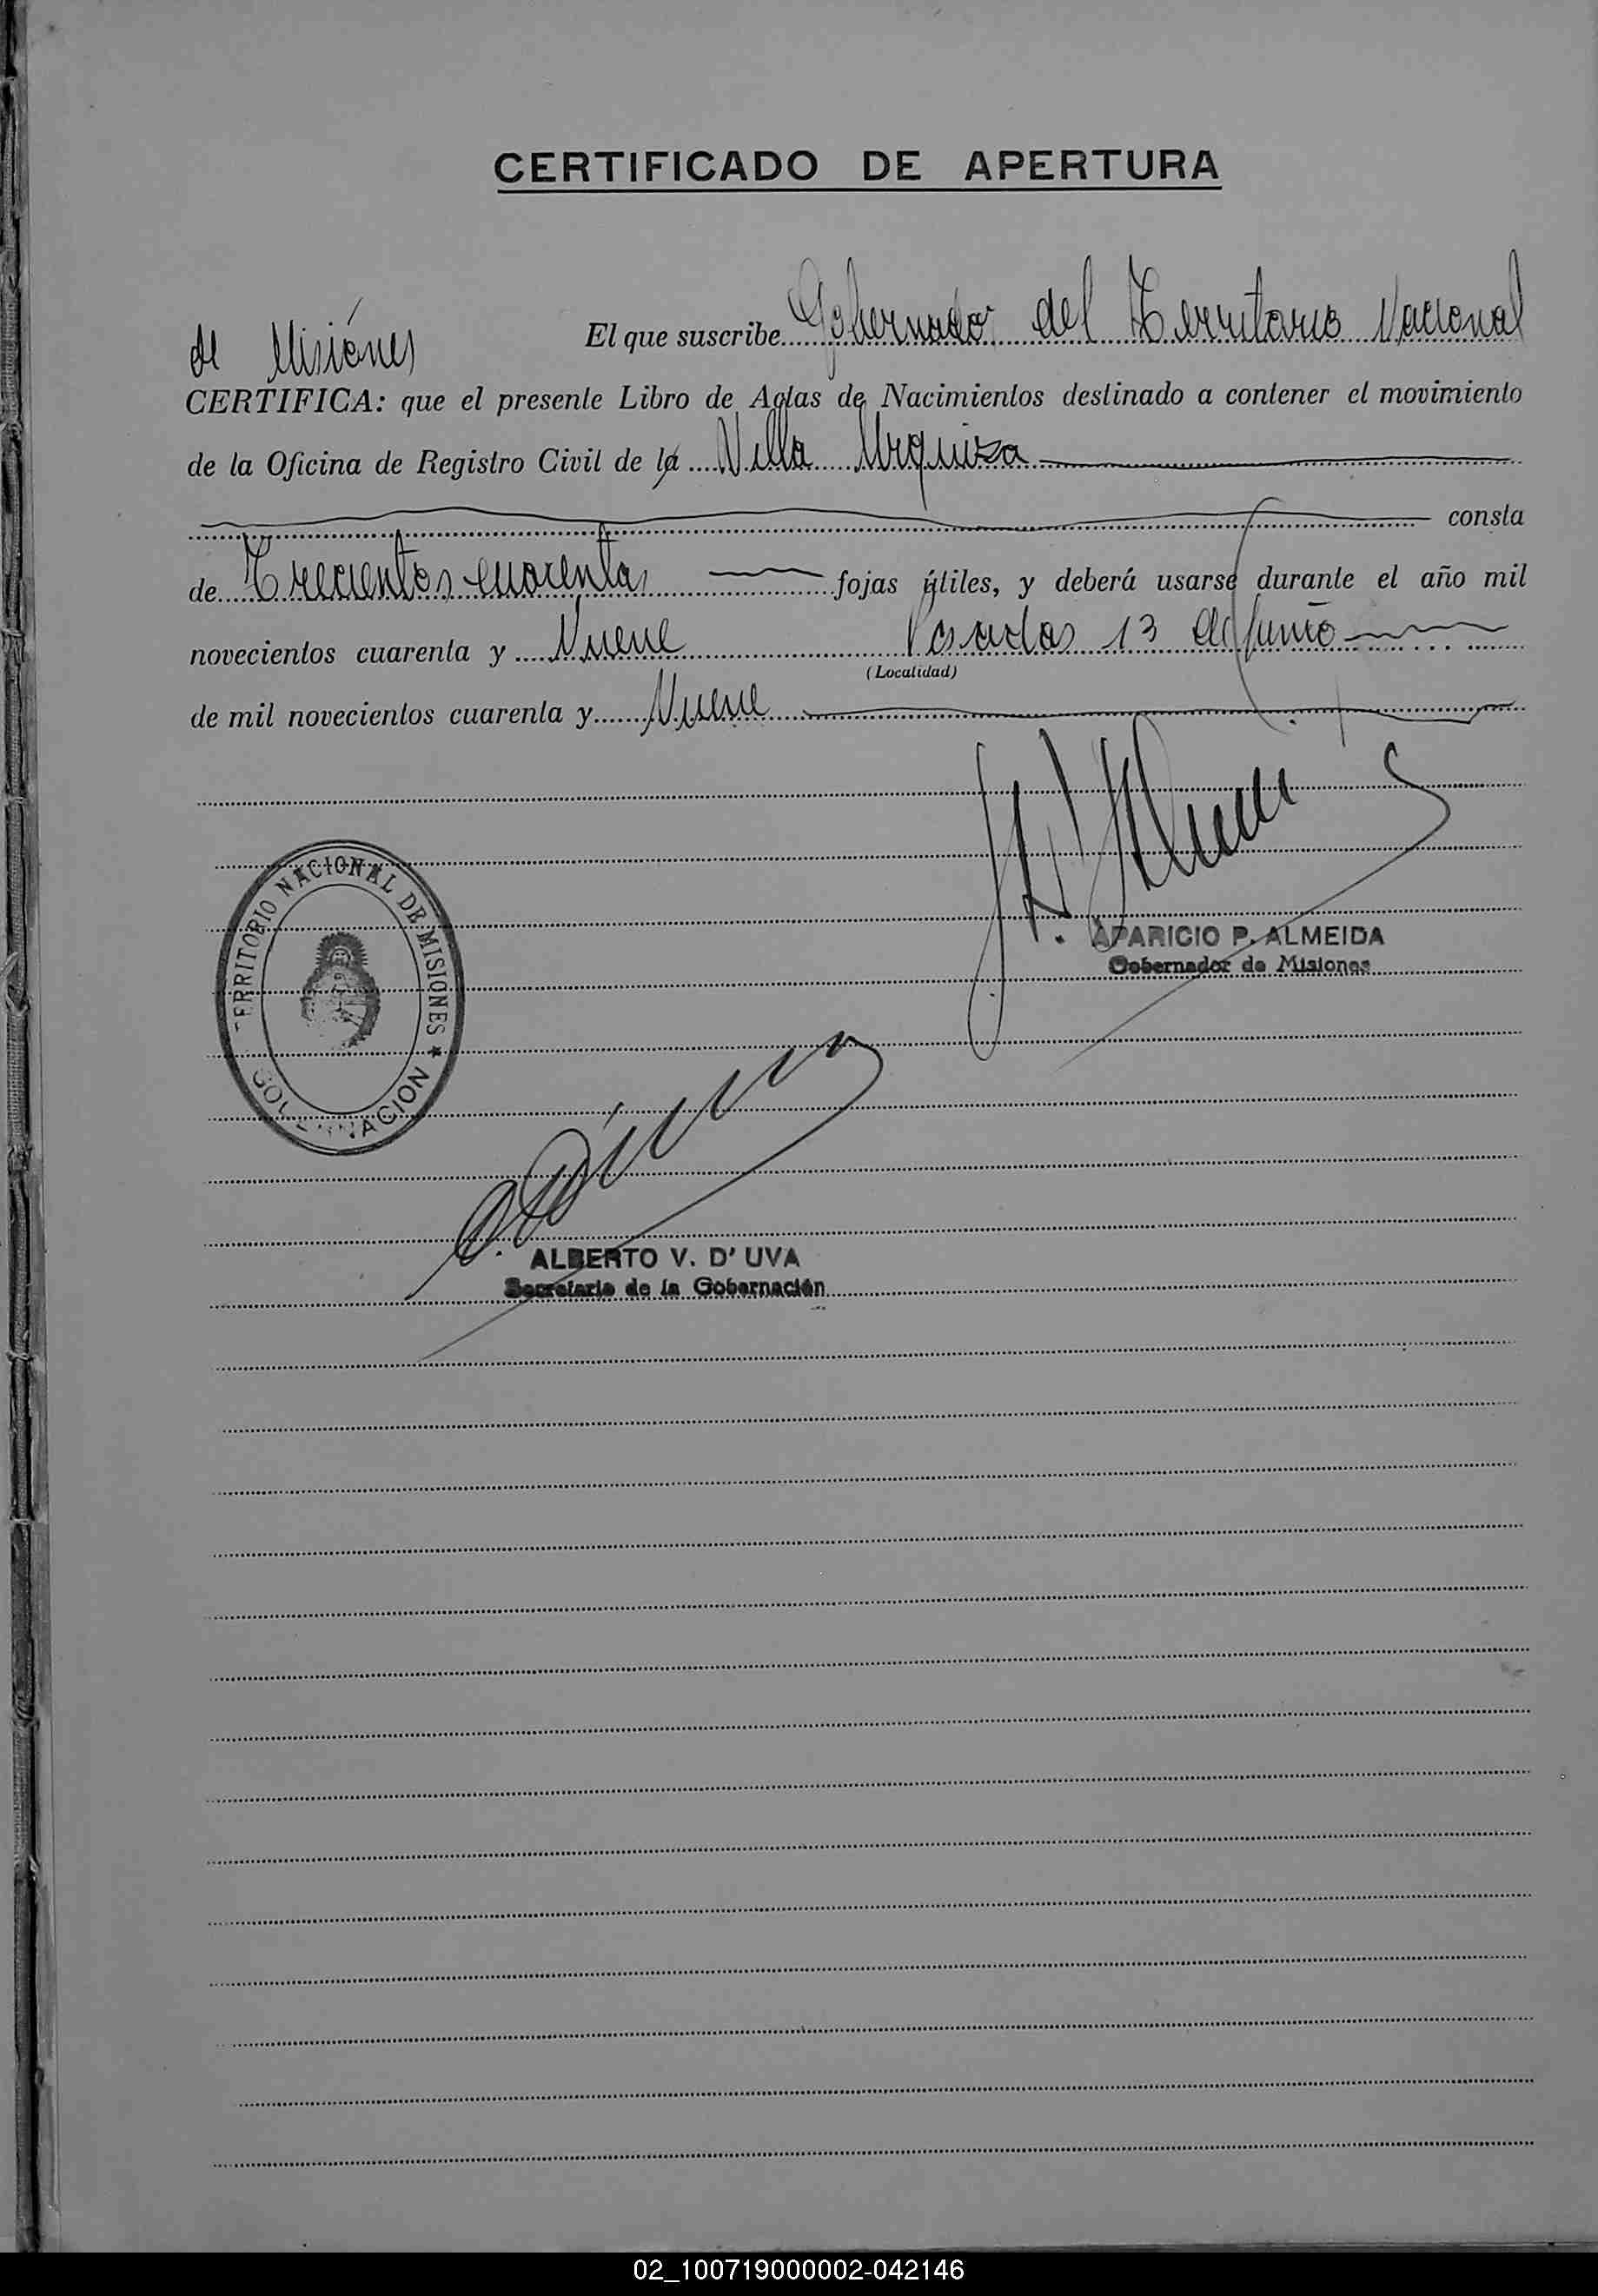 CERTIFICADO DE APERTURA
El que suscribe Gobernador del Territorio Nacional
de Misiónes
CERTIFICA: que el presente Libro de Actas de Nacimientos destinado a contener el movimiento
de la Oficina de Registro Civil de la Villa Urquiza
consta
de Trecientos cuarenta fojas útiles, y deberá usarse durante el año mil
novecientos cuarenta y Nueve Posadas 13 de junio
(Localidad)
de mil novecientos cuarenta y Nueve
TERRITORIO NACIONAL DE MISIONES ★
GOBERNACION
APARICIO P. ALMEIDA
Gobernador de Misiones
ALBERTO V. D' UVA
Secretario de la Gobernación
02_100719000002-042146